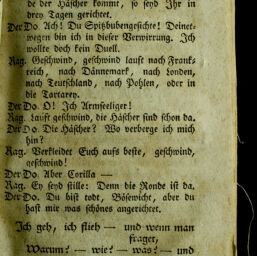 de der Häscher kommt, so seyd Ihr in
drey Tagen gerichtet.
Der Do. Ach! Du Spitzbubengesichte! Deinet-
wegen bin ich in dieser Verwirrung. Ich
wollte doch kein Duell.
Rag. Geschwind, geschwind lauft nach Frank-
reich, nach Dännemark, nach Londen,
nach Teutschland, nach Pohlen, oder in
die Tartarey.
Der Do. O! Ich Armseeliger!
Rag. Lauft geschwind, die Häscher sind schon da.
Der Do. Die Häscher? Wo verberge ich mich
hin?
Rag. Verkleidet Euch aufs beste, geschwind,
geschwind!
Der Do. Aber Corilla —
Rag. Ey seyd stille: Denn die Ronde ist da.
Der Do. Du bist todt, Bösewicht, aber du
hast mir was schönes angerichtet.
Ich geh, ich flieh — und wenn man
frager,
Warum? — wie? — was? — und